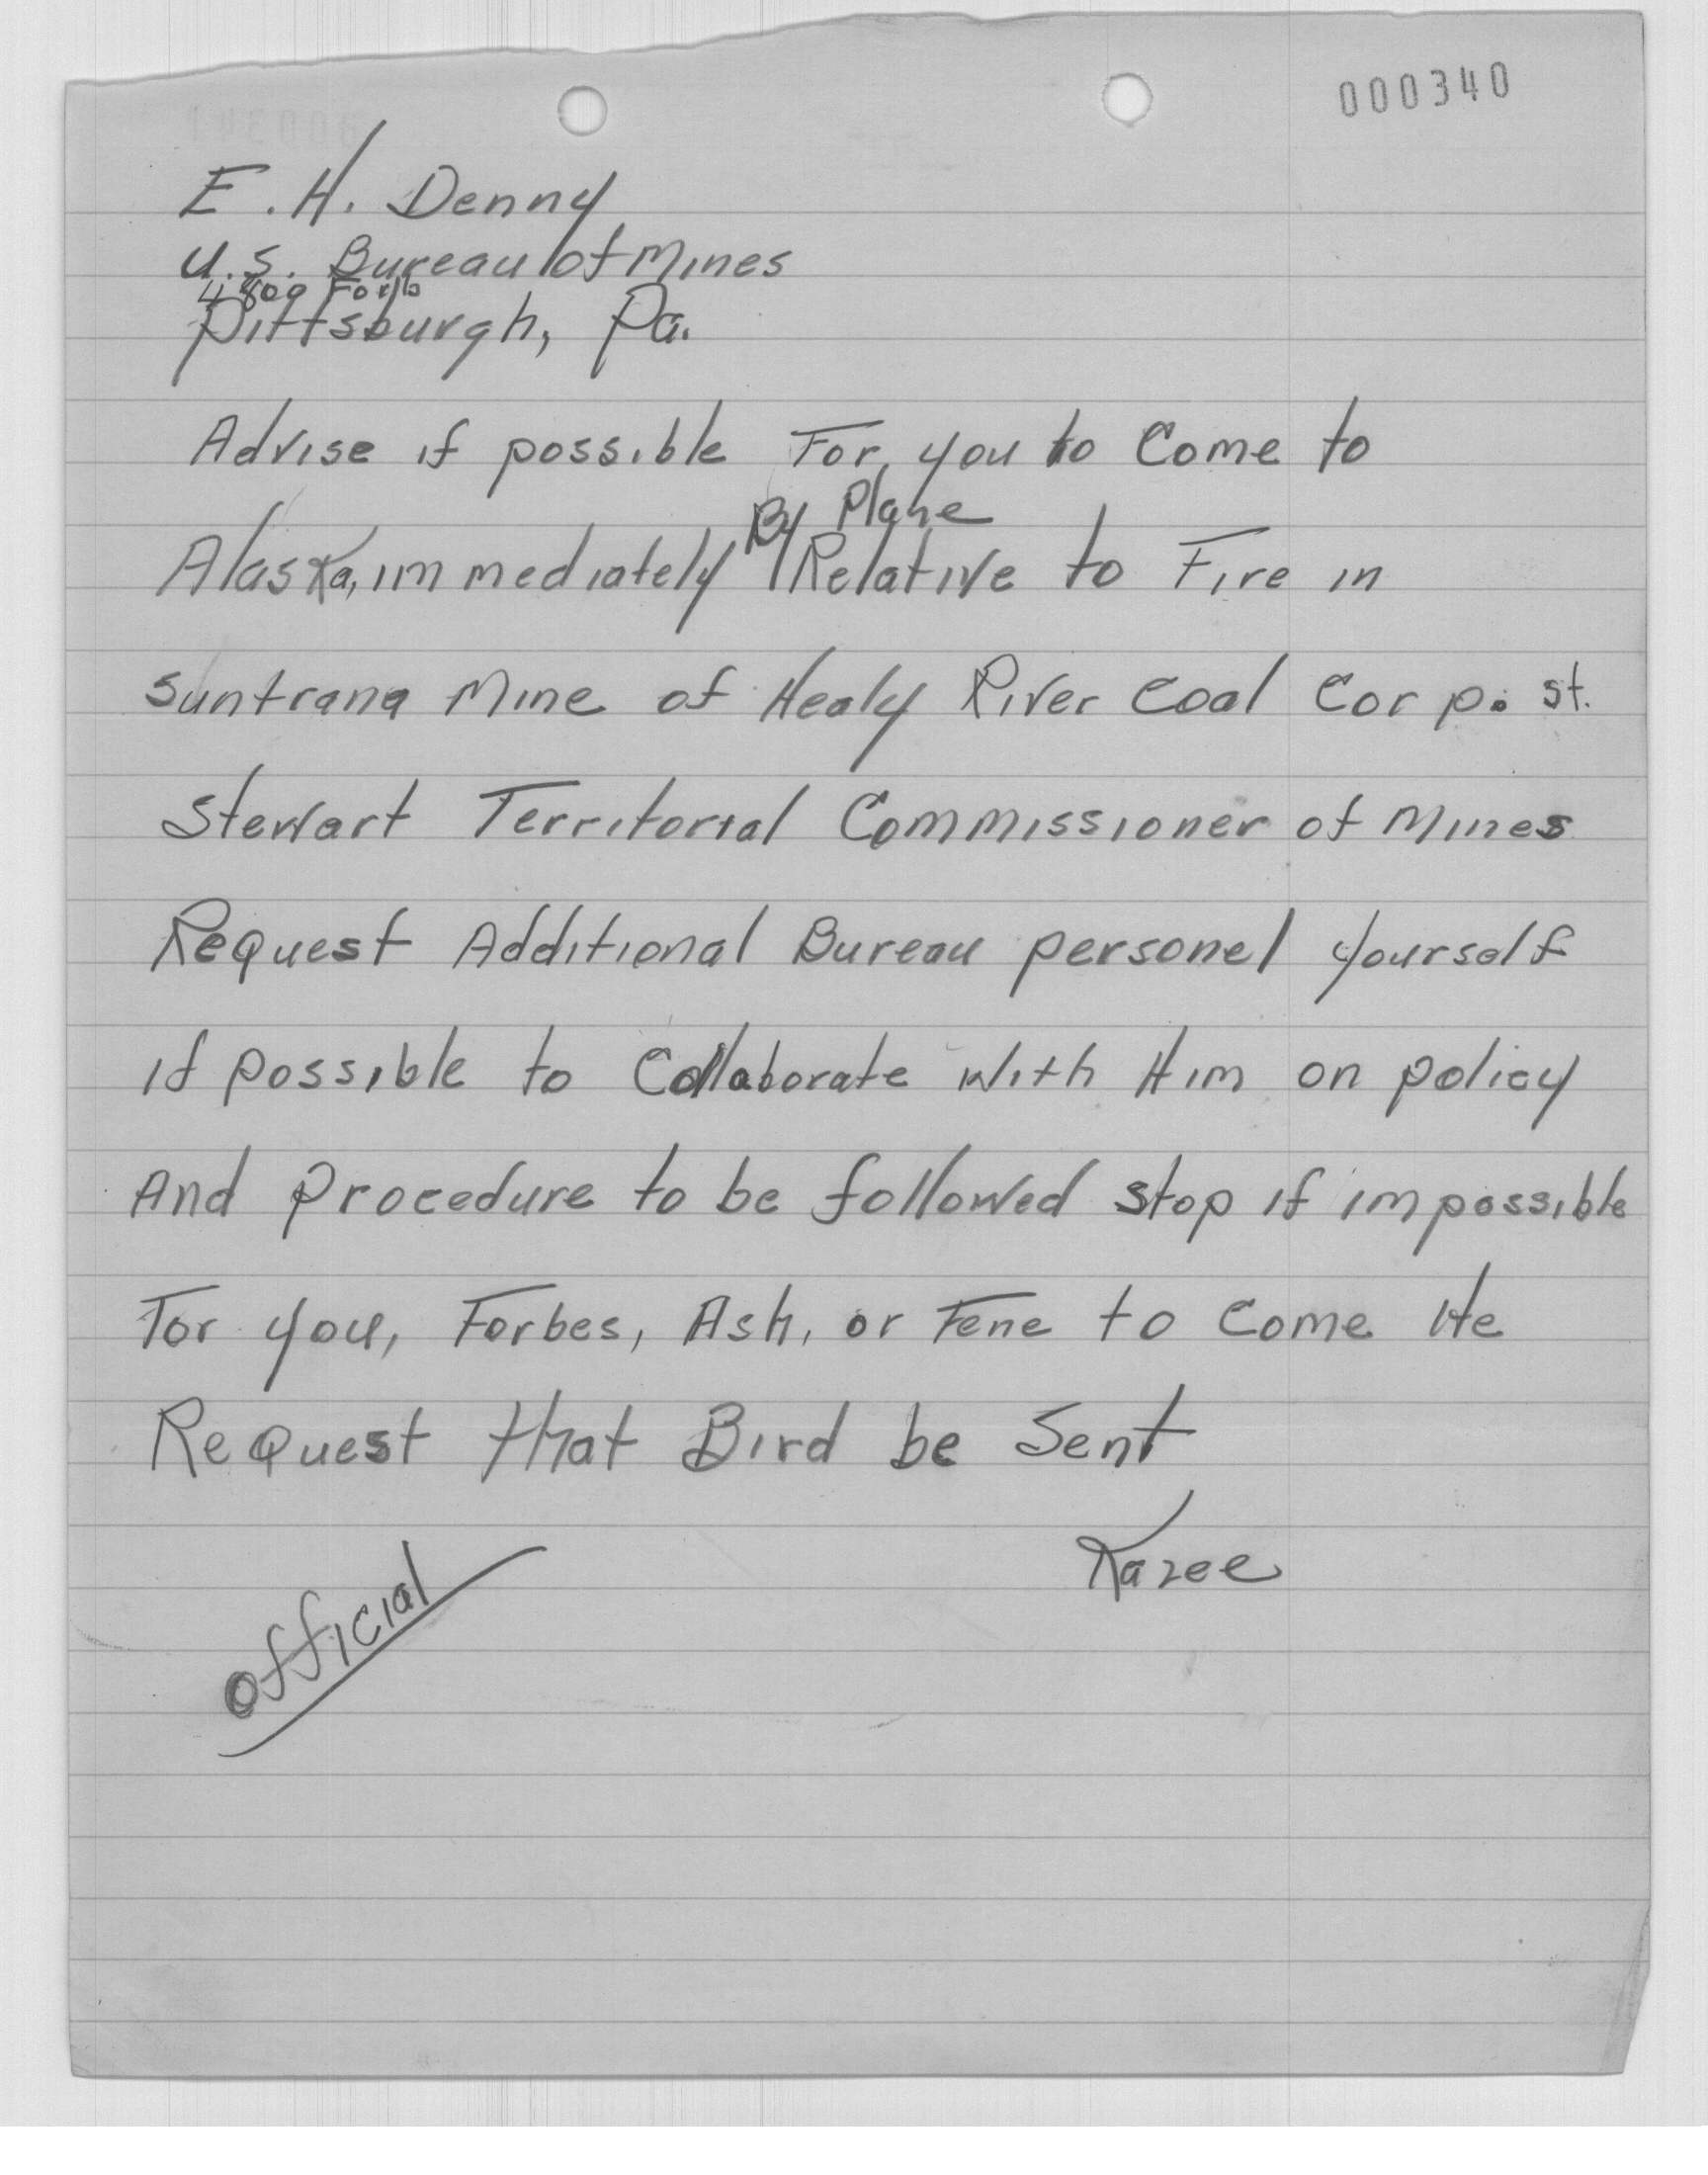 000340
E. H. Denny
U.S. Bureau of Mines
4800 Forb
Pittsburgh, Pa.
Advise if possible For you to Come to
By Plane
Alaska, immediately Relative to Fire in
Suntrana Mine of Healy River Coal Corp. st.
Stewart Territorial Commissioner of Mines
Request Additional Bureau personel yourself
if possible to Collaborate with Him on policy
And procedure to be followed stop if impossible
For you, Forbes, Ash, or Fene to Come He
Request that Bird be Sent
Kazee
official